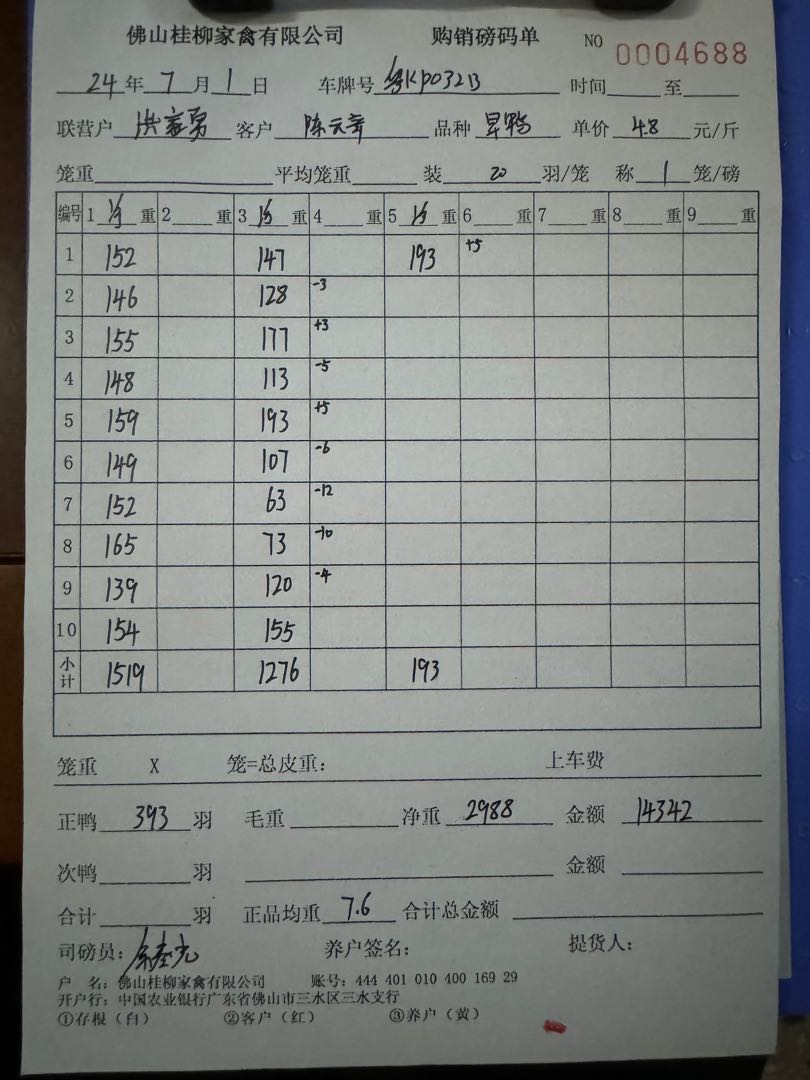 佛山桂柳家禽有限公司 购销磅码单 NO 0004688
24年7月1日 车牌号 粤KP032B 时间 至
联营户 洪家勇 客户 陈元 品种 旱鸭 单价 4.8 元/斤
笼重 平均笼重 装 20 羽/笼 称 1 笼/磅
编号 1 重 2 重 3 重 4 重 5 重 6 重 7 重 8 重 9 重
1 152 147 193 +5
2 146 128 -3
3 155 177 +3
4 148 113 -5
5 159 193 +5
6 149 107 -6
7 152 63 -12
8 165 73 -10
9 139 120 -4
10 154 155
小计 1519 1276 193
笼重 X 笼=总皮重: 上车费
正鸭 393 羽 毛重 净重 2988 金额 14342
次鸭 羽 金额
合计 羽 正品均重 7.6 合计总金额
司磅员: 养户签名: 提货人:
户 名: 佛山桂柳家禽有限公司 账号: 444 401 010 400 169 29
开户行: 中国农业银行广东省佛山市三水区三水支行
①存根（白） ②客户（红） ③养户（黄）